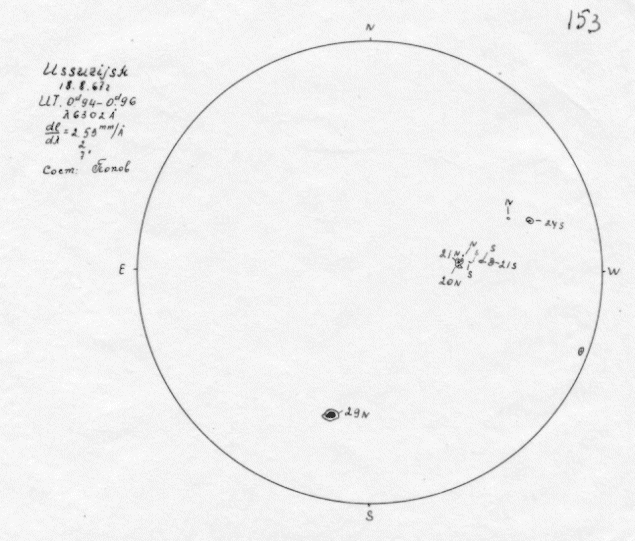 153
N
Ussurijsk
18.8.67г
UT. 0ᵈ94-0ᵈ96
λ6302Å
dl/dλ = 2.53 mm/Å
2
7.
Сост: Попов
N
-24s
21N
N
S
S
-21s
S
20N
E
W
29N
S